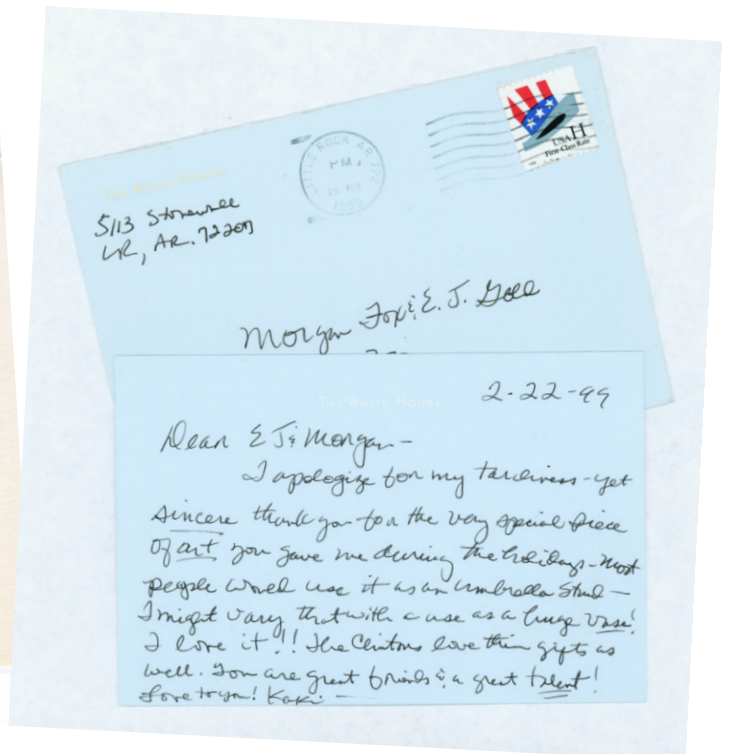 The White House
5113 Stonewall
LR, AR. 72207
LITTLE ROCK AR 722
PM
1999
USA H
First-Class Rate
Morgan Fox & E. J. Gold
The White House
2-22-99
Dear E J & Morgan -
I apologize for my tardiness - yet
sincere thank you for the very special piece
of art you gave me during the holidays - Most
people would use it as an umbrella stand -
I might vary that with a use as a huge vase!
I love it!! The Clintons love their gifts as
well. You are great friends & a great talent!
Love to you! Kaki -